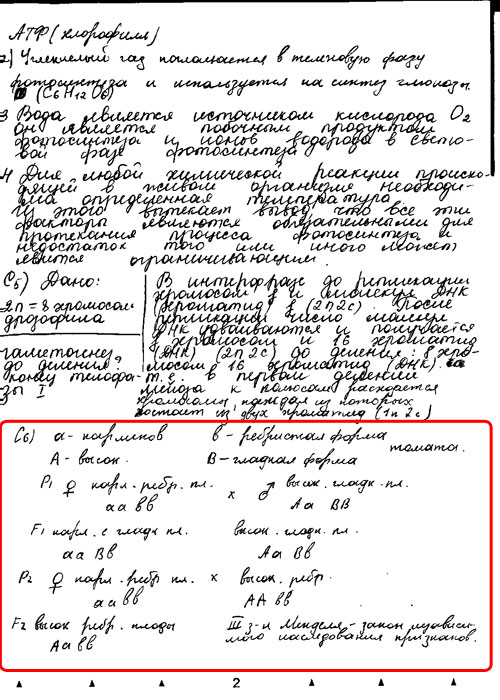 АТФ (хлорофилл)
2) Углекислый газ поглощается в темновую фазу
фотосинтеза и используется на синтез глюкозы.
(C6H12O6)
3 Вода является источником кислорода O2
он является побочным продуктом
фотосинтеза и ионов водорода в свето-
вой фазе фотосинтеза
4 Для любой химической реакции происхо-
дящей в живом организме необходи-
ма определенная температура
Из этого вытекает вывод, что все эти
факторы являются обязательными для
протекания процесса фотосинтеза и
недостаток того или иного может
явится ограничивающим.
C5) Дано:
2n = 8 хромосом
дрозофила
гаметогенез,
до деления,
конец телофа-
зы I
В интерфазе до репликации
хромосом 8 и молекул ДНК
(хроматид) 8 (2n2c). После
репликации число молекул
ДНК удваиваются и получается
8 хромосом и 16 хроматид
(ДНК) (2n2c) до деления: 8 хро-
мосом, 16 хроматид (ДНК).
т.е. в первом делении
мейоза к полюсам расходятся
хромосомы, каждая из которых
состоит из двух хроматид (1n2c)
C6) a - карликов в - ребристая форма
A - высок. B - гладкая форма томата.
P1 ♀ карл. ребр. пл. x ♂ высок. гладк. пл.
aa вв Aa BB
F1 карл. с гладк пл. высок. гладк. пл.
aa Bв Aa Bв
P2 ♀ карл. ребр пл. x высок. ребр.
aa вв AA вв
F2 высок ребр. плоды III з-н Менделя - закон независи-
Aa вв мого наследования признаков.
2